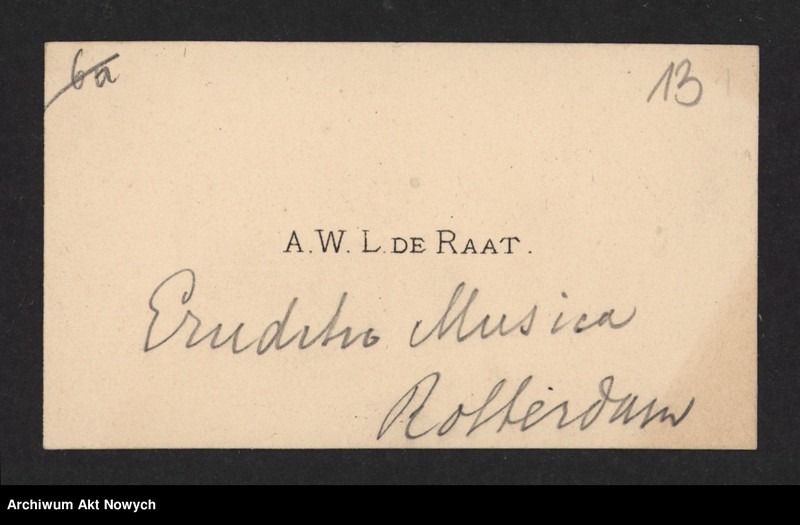 6a
13
A. W. L. DE RAAT.
Eruditio Musica
Rotterdam
Archiwum Akt Nowych